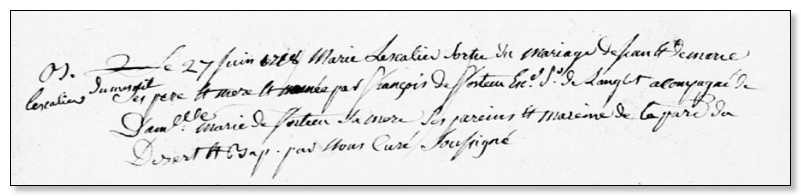 B. Le 27 juin 1718 Marie Lescalier sortie du mariage de Jean et de marie
Lescalier dumesnil ses pere et mere et nomée par François de Sorteu Enc. Sr. de Langlet acompagné de
Dam.lle marie de Sorteu sa mere ses pareins et mareine de la par. du
Desert et Bap. par Nous Curé Soussigné